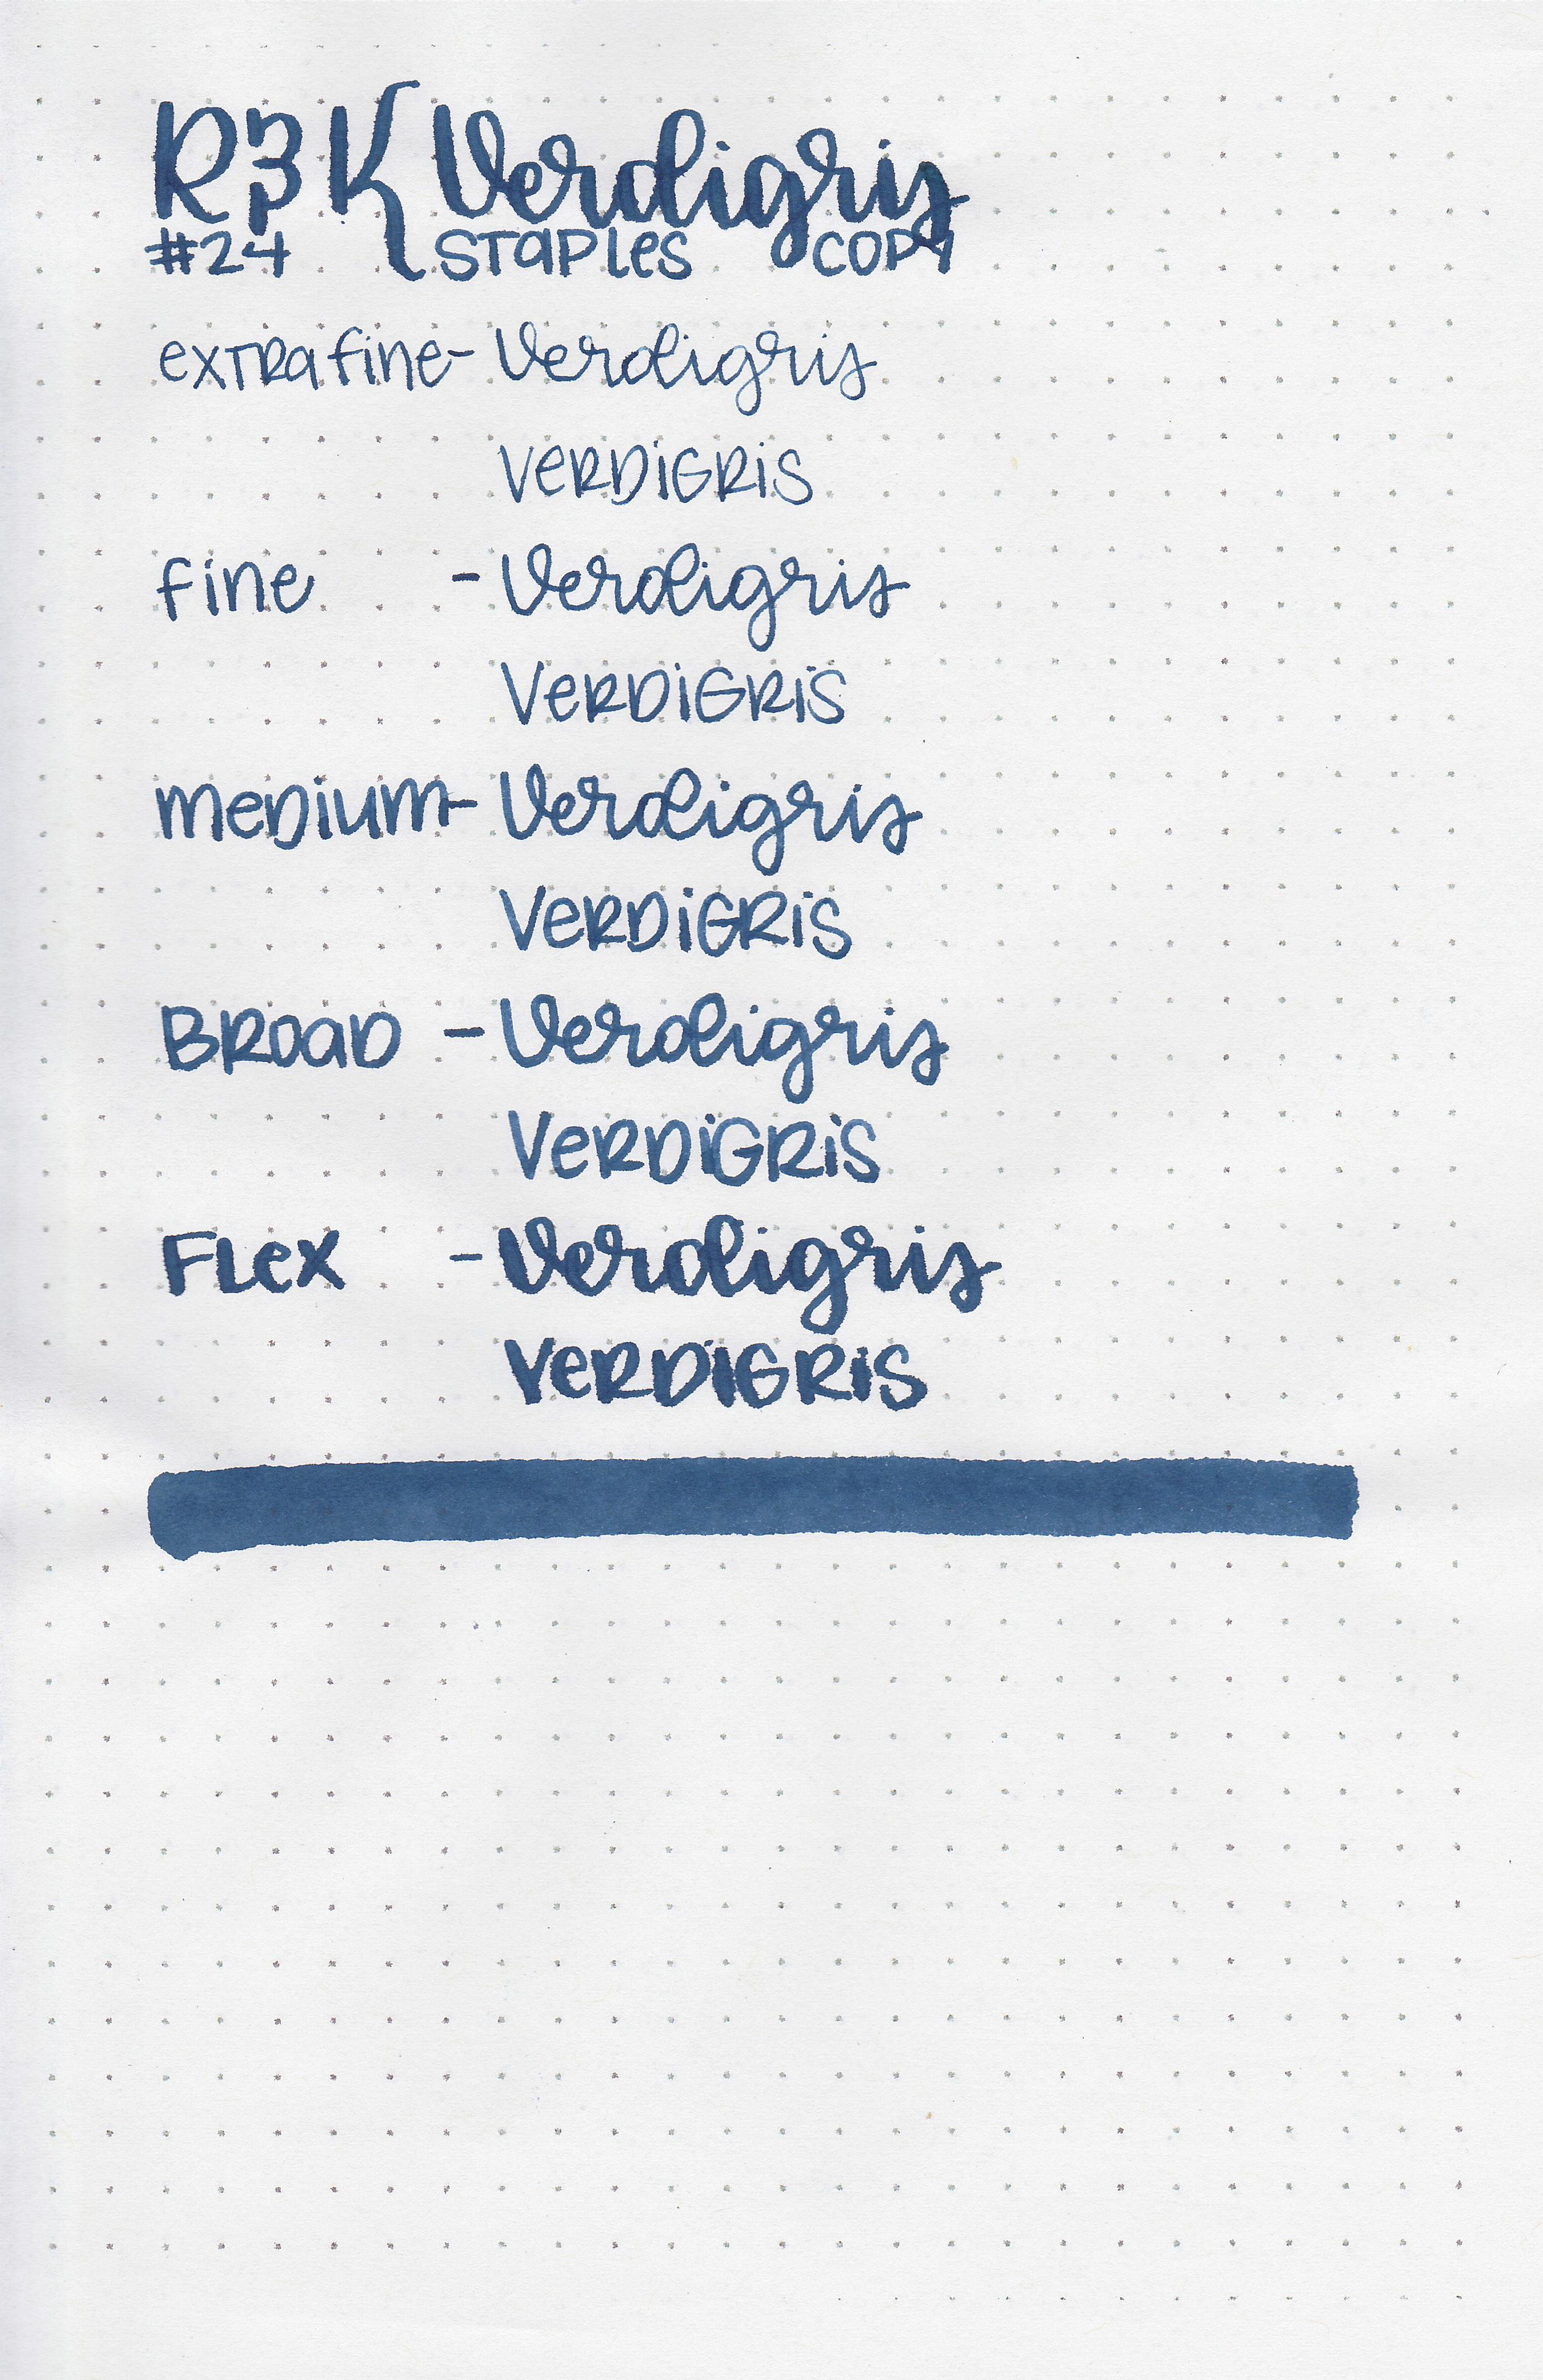 R&K Verdigris
#24 Staples COPY
extra fine- Verdigris
VeRDiGRiS
fine - Verdigris
VeRDiGRiS
meDium- Verdigris
VeRDiGRiS
BROaD - Verdigris
VeRDiGRiS
FLex - Verdigris
VeRDiGRiS